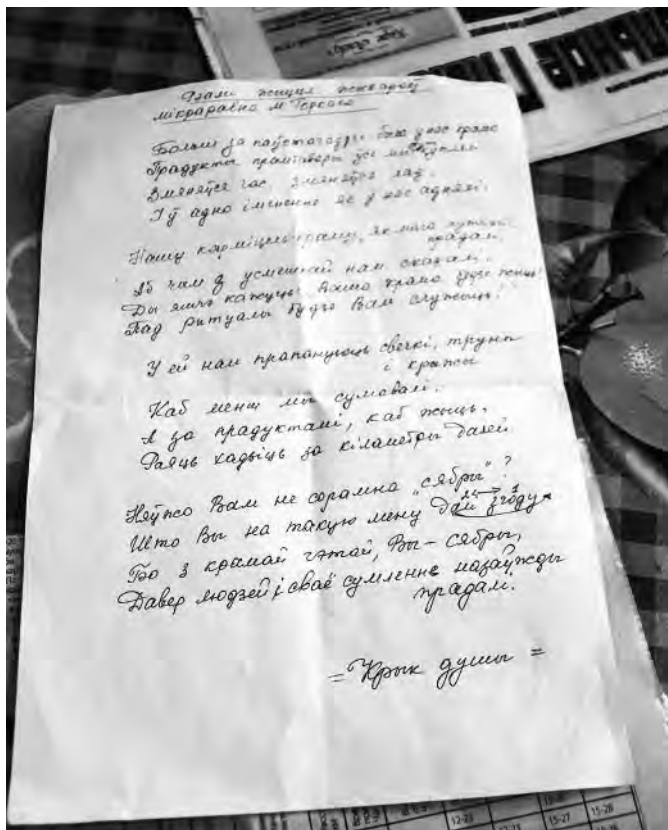 жыхароў
мікрараёна М Горкага
Больш за паўстагоддзі была ў нас крама
Прадукты прамтавары ўсе мы куплялі
Змяняўся час, змяняўся лад,
І ў адно імгненне яе ў нас аднялі.
Нашу карміцельку краму, як мага хутчэй
прадалі,
Аб чам з усмешкай нам сказалі.
Ды яшчэ кажуць: Ваша крама будзе жыць!
Пад рытуалы будзе Вам служыць!
У ей нам прапануюць свечкі, труны
і крыжы
Каб менш мы сумавалі.
А за прадуктамі, каб жыць,
Раяць хадзіць за кіламетры далей
Няўжо Вам не сорамна "сябры"?
Што Вы на такую мену далі згоду
Бо з крамай гэтай, Вы - сябры,
Давер людзей і сваё сумленне назаўжды
прадалі.
= Крык душы =
12-23
15-27
15-28